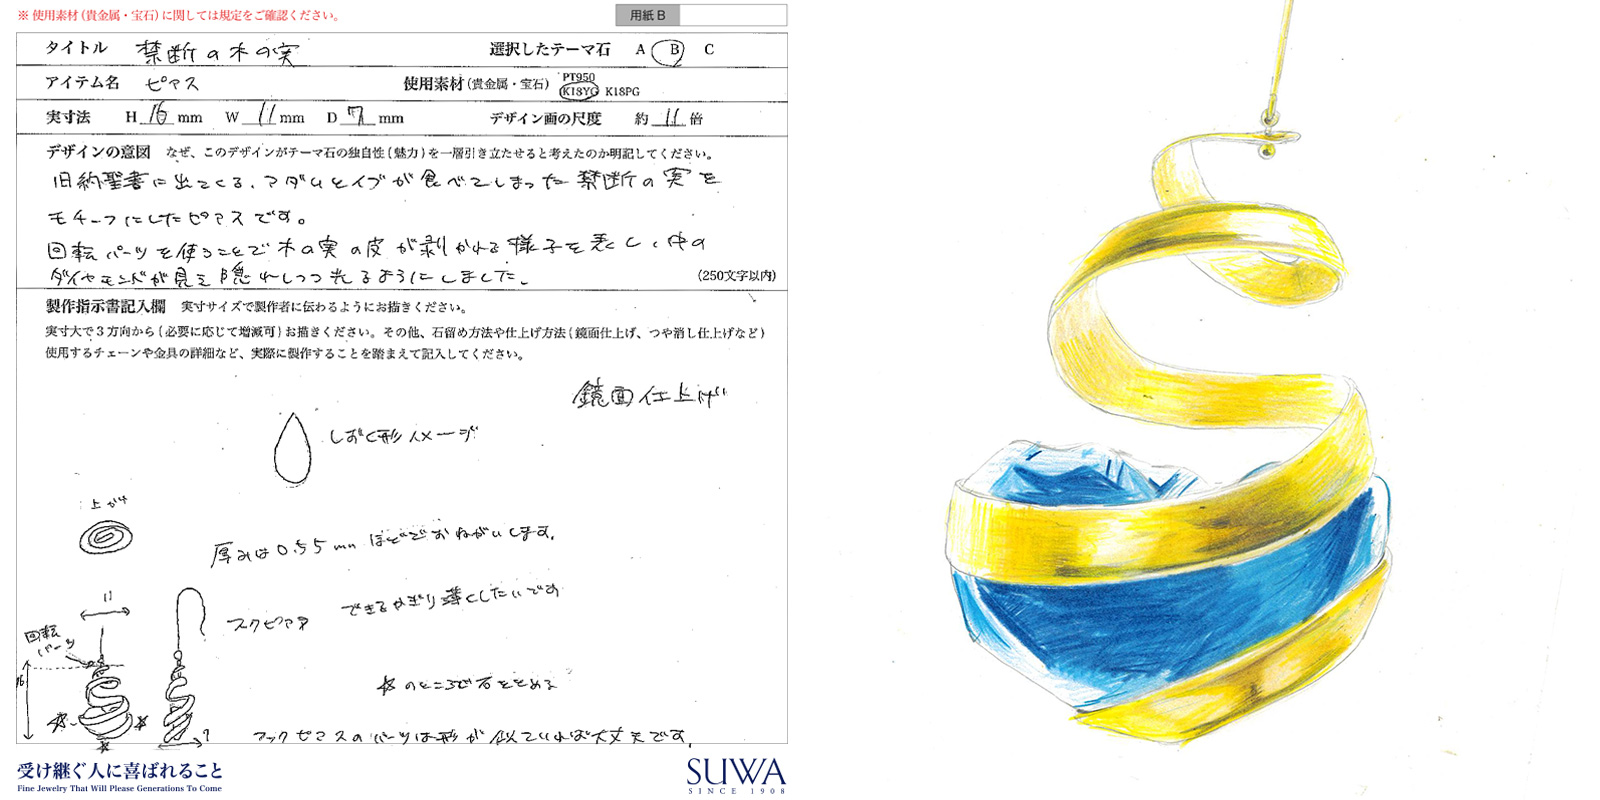 ※ 使用素材（貴金属・宝石）に関しては規定をご確認ください。
用紙 B
タイトル 禁断の木の実 選択したテーマ石 A B C
アイテム名 ピアス 使用素材（貴金属・宝石） PT950 K18YG K18PG
実寸法 H 16 mm W 11 mm D 7 mm デザイン画の尺度 約 11 倍
デザインの意図 なぜ、このデザインがテーマ石の独自性（魅力）を一層引き立たせると考えたのか明記してください。
旧約聖書に出てくる、アダムとイブが食べてしまった禁断の実を
モチーフにしたピアスです。
回転パーツを使うことで木の実の皮が剥かれる様子を表し、中の
ダイヤモンドが見え隠れしつつ光るようにしました。
（250文字以内）
製作指示書記入欄 実寸サイズで製作者に伝わるようにお描きください。
実寸大で3方向から（必要に応じて増減可）お描きください。その他、石留め方法や仕上げ方法（鏡面仕上げ、つや消し仕上げなど）
使用するチェーンや金具の詳細など、実際に製作することを踏まえて記入してください。
鏡面仕上げ
しずく形イメージ
上から
厚みは0.55mmほどでおねがいします。
できるかぎり薄くしたいです
11
フックピアス
回転
パーツ
16
☆のところで石をとめる
7
フックピアスのパーツは形が似ていれば大丈夫です。
受け継ぐ人に喜ばれること
Fine Jewelry That Will Please Generations To Come
SUWA
SINCE 1908